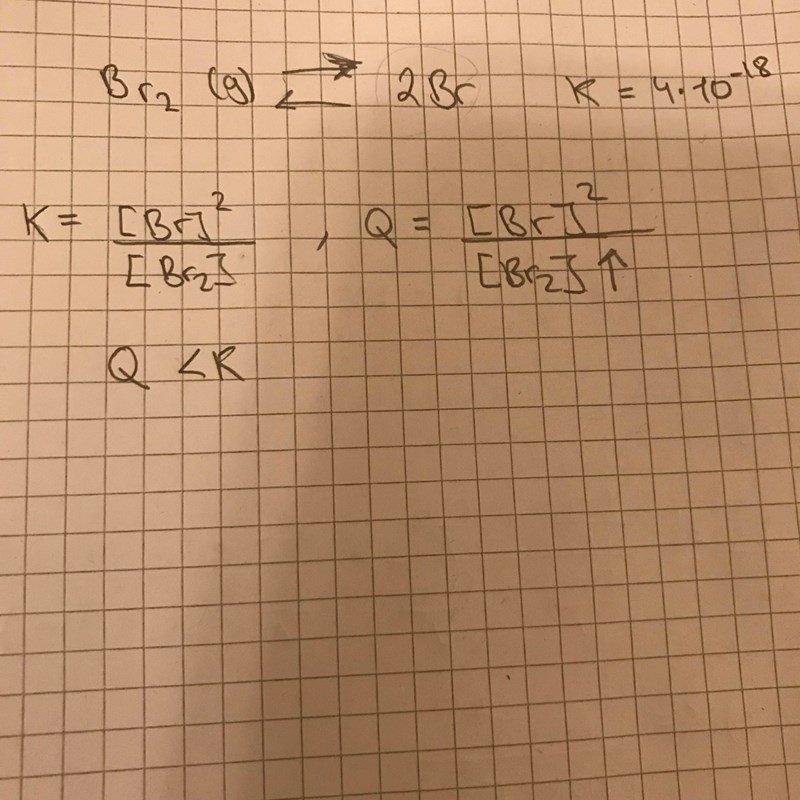 Br₂ (g) ⇄ 2Br K = 4·10⁻¹⁸
K = [Br]² / [Br₂] , Q = [Br]² / [Br₂]↑
Q < K